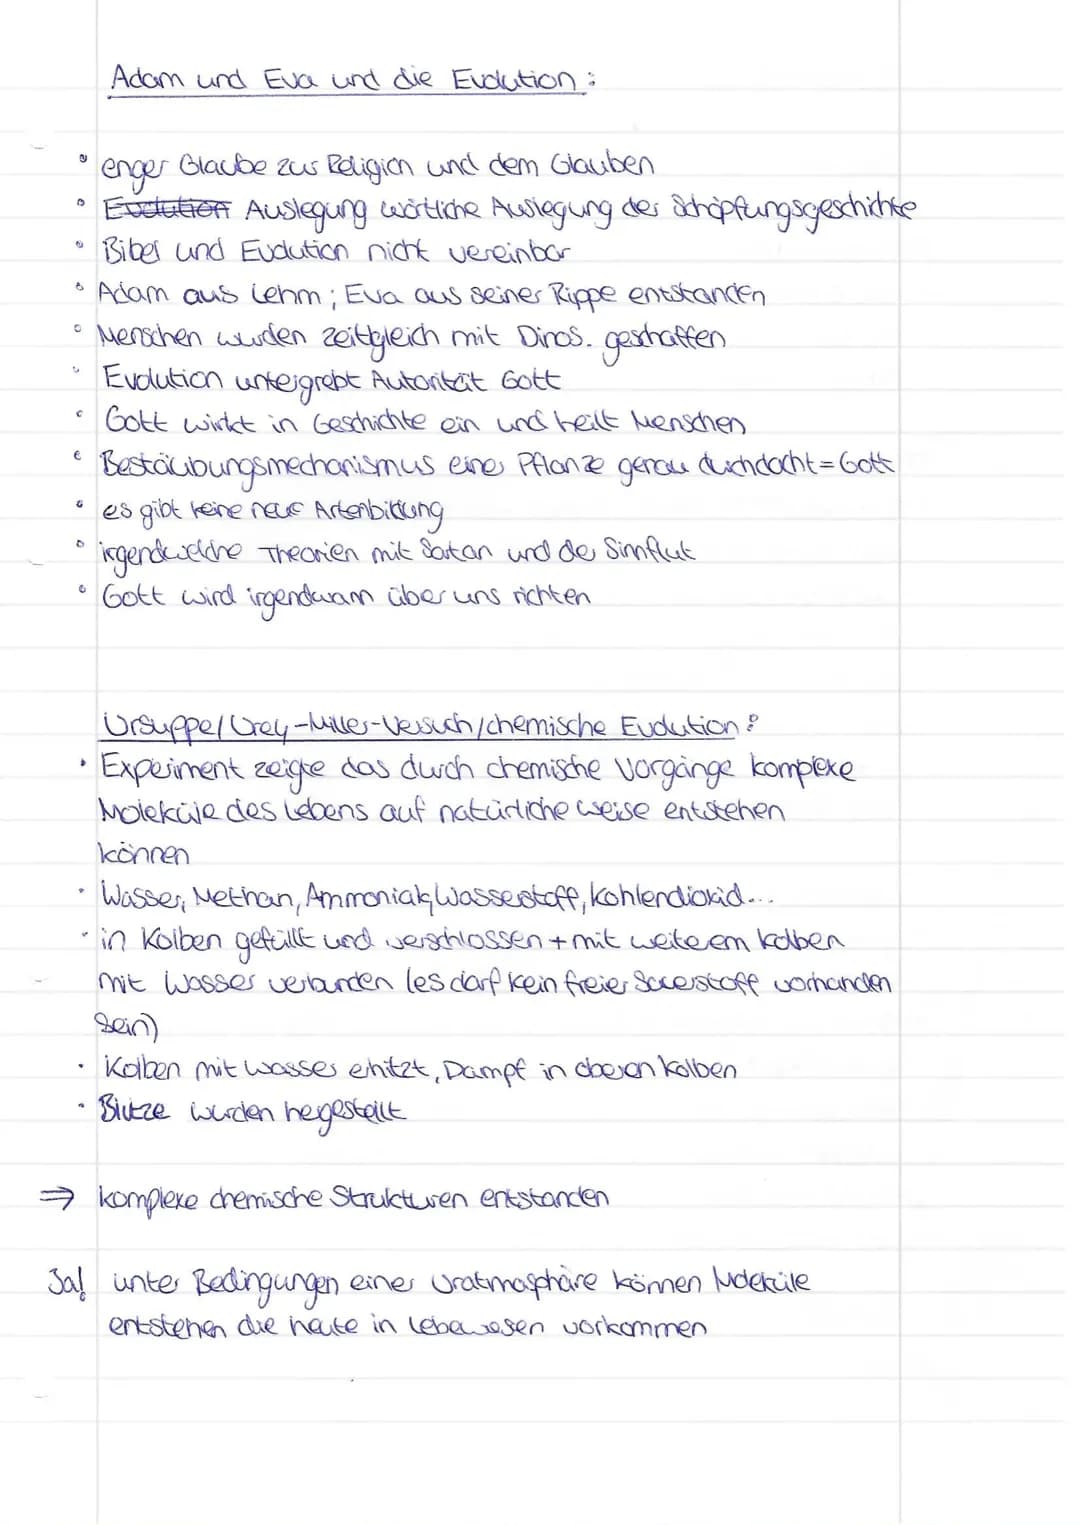 Adam und Eva und die Evolution:
• enger Glaube zur Religion und dem Glauben
• Evolution Auslegung wörtliche Auslegung der Schöpfungsgeschichte
• Bibel und Evolution nicht vereinbar
• Adam aus Lehm; Eva aus seiner Rippe entstanden
• Menschen wurden zeitgleich mit Dinos. geschaffen
• Evolution untergrebt Autorität Gott
• Gott wirkt in Geschichte ein und heilt Menschen
• Bestäubungsmechanismus einer Pflanze genau durchdacht = Gott
• es gibt keine neue Artenbildung
• irgendwelche Theorien mit Satan und der Sinnflut
• Gott wird irgendwann über uns richten
Ursuppe/Urey-Miller-Versuch/chemische Evolution:
• Experiment zeigte das durch chemische Vorgänge komplexe
Moleküle des Lebens auf natürliche weise entstehen
können
• Wasser, Methan, Ammoniak, Wasserstoff, Kohlendioxid...
• in Kolben gefüllt und verschlossen + mit weiterem Kolben
mit Wasser verbunden (es darf kein freier Sauerstoff vorhanden
sein)
• Kolben mit Wasser erhitzt, Dampf in oberen Kolben
• Blitze wurden hergestellt
⇒ komplexe chemische Strukturen entstanden
Ja! unter Bedingungen einer Uratmosphäre können Moleküle
entstehen die heute in Lebewesen vorkommen